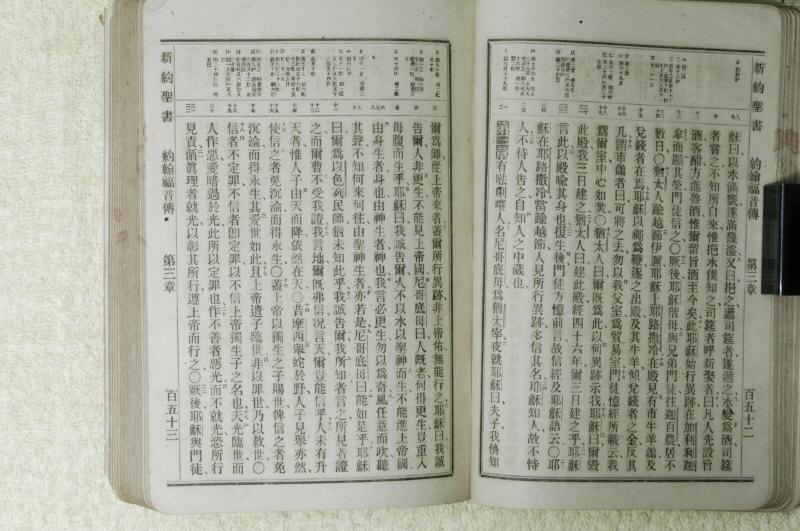 新約聖書 約翰福音傳 第三章 百五十二
穌曰以水滿甕遂滿幾溢又曰挹之遞司筵者遂遞之水變爲酒司筵
者嘗之不知所自來惟挹水僕知之司筵者呼新娶者曰凡人先設旨
酒客酣方進魯酒惟爾留旨酒至今矣此耶穌始行異跡在加利利迦
拿而顯其榮門徒信之〇厥後耶穌偕母與兄弟門徒往迦百農居不
數日〇猶太人踰越節伊邇耶穌上耶路撒冷在殿見有市牛羊鴿及
兌錢者在焉耶穌以繩爲鞭逐之出殿及其牛羊傾兌錢者之金反其
几謂市鴿者曰可將之去勿以我父室爲貿易室門徒憶經所載云我
爲爾室中心如焚〇猶太人曰爾旣爲此以何異蹟示我耶穌曰爾毀
此殿我三日建之猶太人曰建此殿經四十六年爾三日建之乎耶穌
言此以殿喻其身也復生後門徒方憶前言故信經及耶穌語云〇耶
穌在耶路撒冷當踰越節人見所行異跡多信其名耶穌知人故不恃
人不待人告之自知人之中藏也
第三章 有𠵽唎㘔人名尼哥底母爲猶太宰夜就耶穌曰夫子我儕知
新約聖書 約翰福音傳 第三章 百五十三
爾爲師從上帝來者蓋爾所行異跡非上帝佑無能行之耶穌曰我誠
告爾人非更生不能見上帝國尼哥底母曰人旣老何得更生豈重入
母腹而生乎耶穌曰我誠告爾人不以水以聖神而生不能進上帝國
由身生者身也由神生者神也我言必更生勿以爲奇風任意而吹聽
其聲不知何來何往由聖神生者亦若是尼哥底母曰能如是乎耶穌
曰爾爲以色列民師猶未知此乎我誠告爾我所知者言之所見者證
之而爾曹不受我證我言地爾旣弗信况言天爾豈能信乎人未有升
天者惟人子由天而降依然在天〇昔摩西舉蛇於野人子見舉亦然
使信之者免沉淪而得永生〇蓋上帝以獨生之子賜世俾信之者免
沉淪而得永生其愛世如此且上帝遣子臨世非以罪世乃以救世〇
信者不定罪不信者卽定罪以不信上帝獨生子之名也夫光臨世而
人作慝愛暗過於光此所以定罪也作不善者惡光而不就光恐所行
見責循眞理者就光以彰其所行遵上帝而行之〇厥後耶穌與門徒